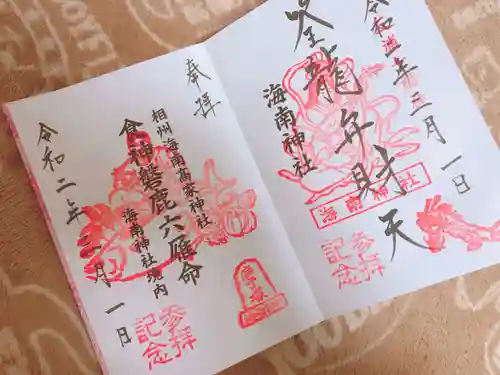 令和弐年三月一日
坒龍弁財天
海南神社
海南神社
参拝
記念
奉拝
相州海南高家神社
食神磐鹿六雁命
海南神社境内
令和二年三月一日
参拝
記念